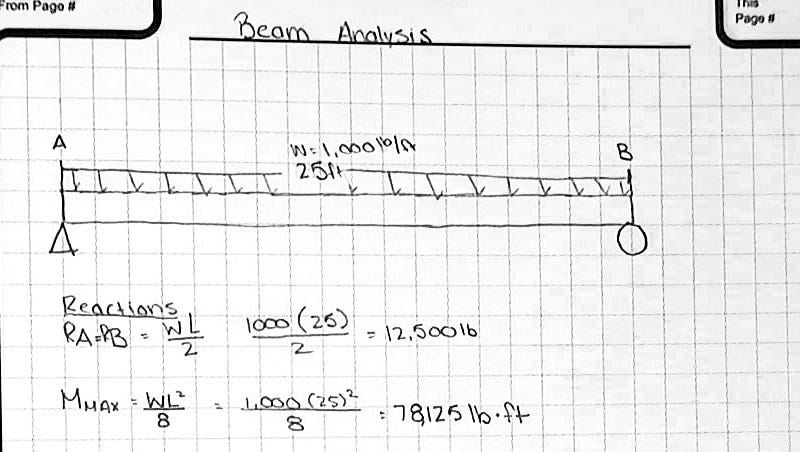 From Page #
This
Page #
Beam Analysis
A
W=1,000 lb/ft
25ft
B
Reactions
RA=RB = WL/2 1000(25)/2 = 12,500 lb
MMAX = WL²/8 = 1,000(25)²/8 = 78,125 lb·ft